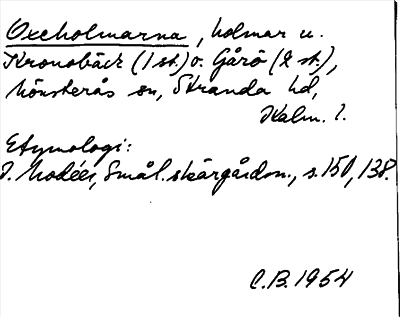 Oxeholmarna, holmar u.
Kronobäck (1 st.) o. Gårö (2 st.),
Mönsterås sn, Stranda hd,
Kalm. l.
Etymologi:
I. Modéer, Smål. skärgårdsn., s. 150, 138.
C.B. 1954